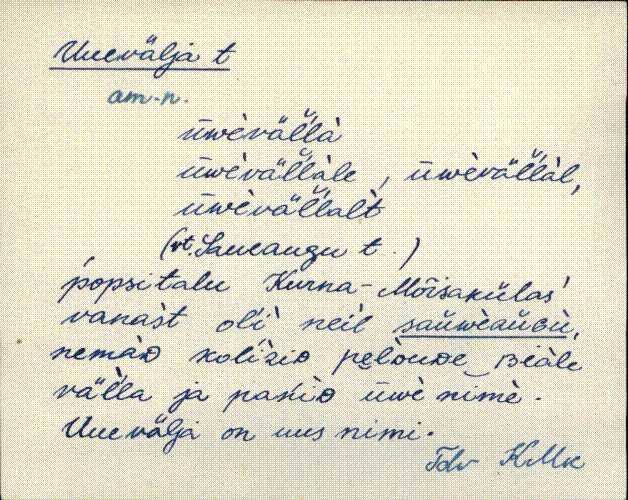 Uuevälja t
am-n.
ūwèväl̆l̆à
ūwèväl̆l̆àle, ūwèväl̆l̆àl,
ūwèväl̆l̆alt̀
(vt. Saueaugu t.)
popsitalu Kurna-Mõisakülas
vanast oĺi neil saŭwèaŭGù,
nemàD koliz̀iD pe̮lDude Biàle
väl̀l̀a ja paniD ūwè nimè.
Uuevälja on uus nimi.
Tdv KMK